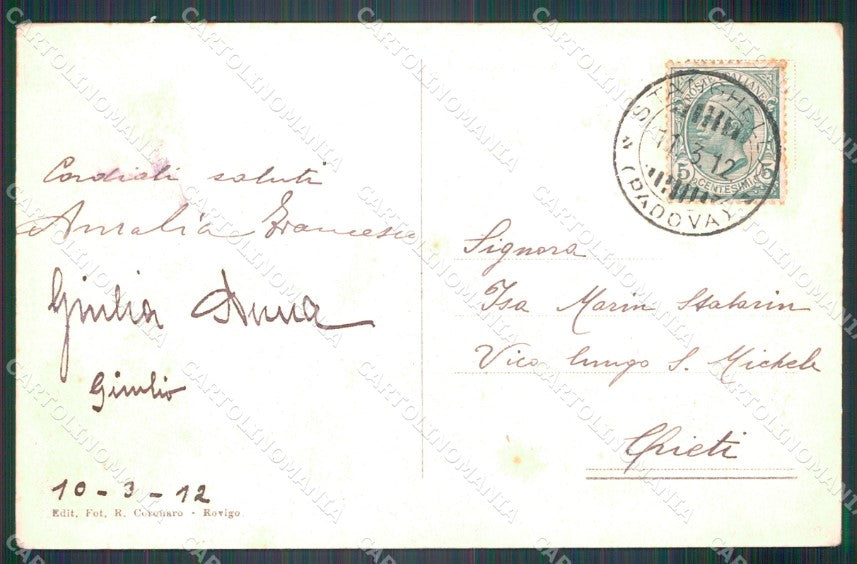 Cordiali saluti
Amalia Francesco
Giulia Anna
Giulio
10 - 3 - 12
Edit. Fot. R. Coronaro - Rovigo
POSTE ITALIANE
5 CENTESIMI 5
STANGHELLA
3.12
(PADOVA)
Signora
Isa Marin
Vico lungo S. Michele
Chieti
CARTOLINOMANIA